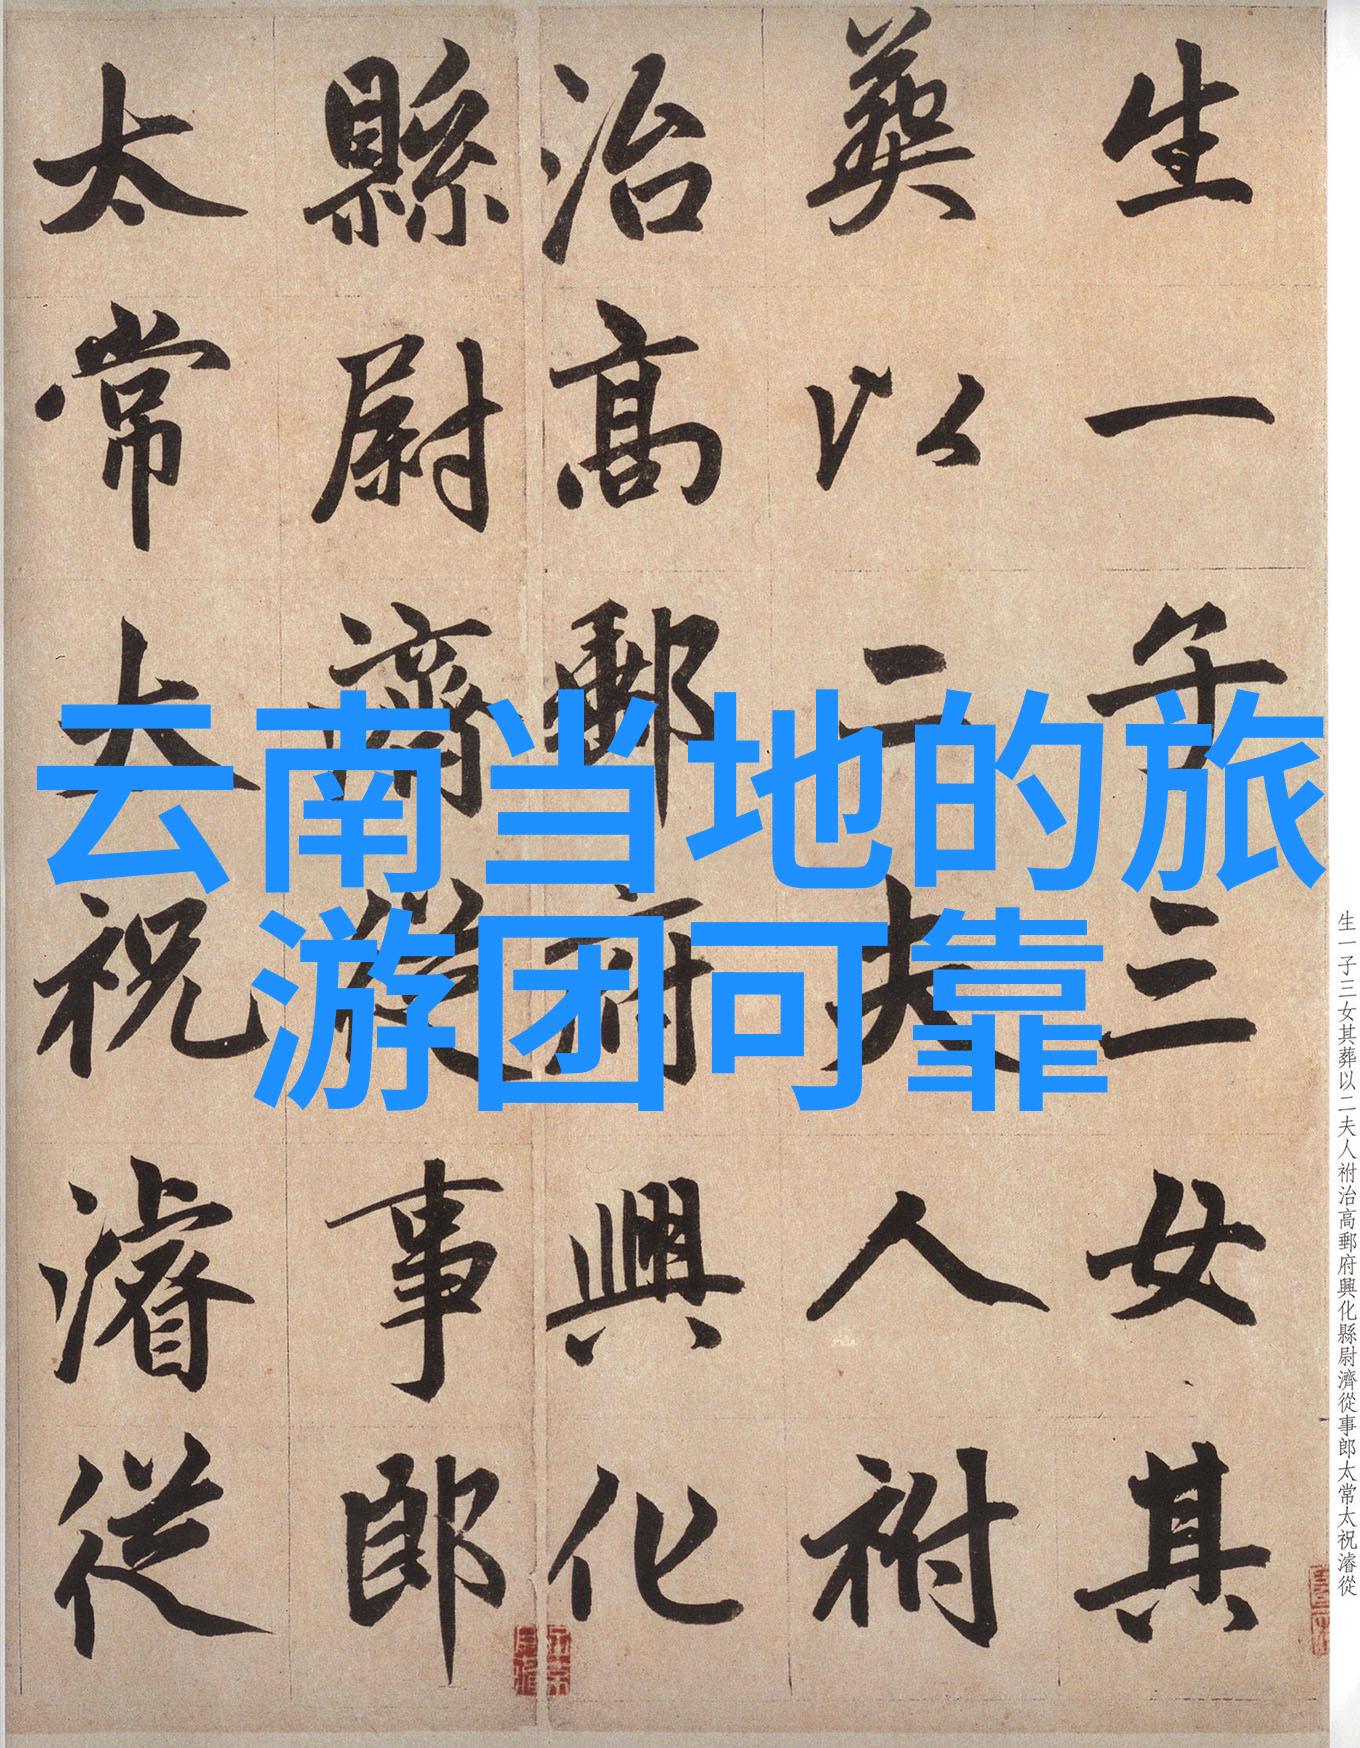 云南当地的旅
游团可靠
生一子三女其
葬以二夫人祔
治高郵府興化
縣尉濟從事郎
太常太祝濬從
生一子三女其葬以二夫人祔治高郵府興化縣尉濟從事郎太常太祝濬從